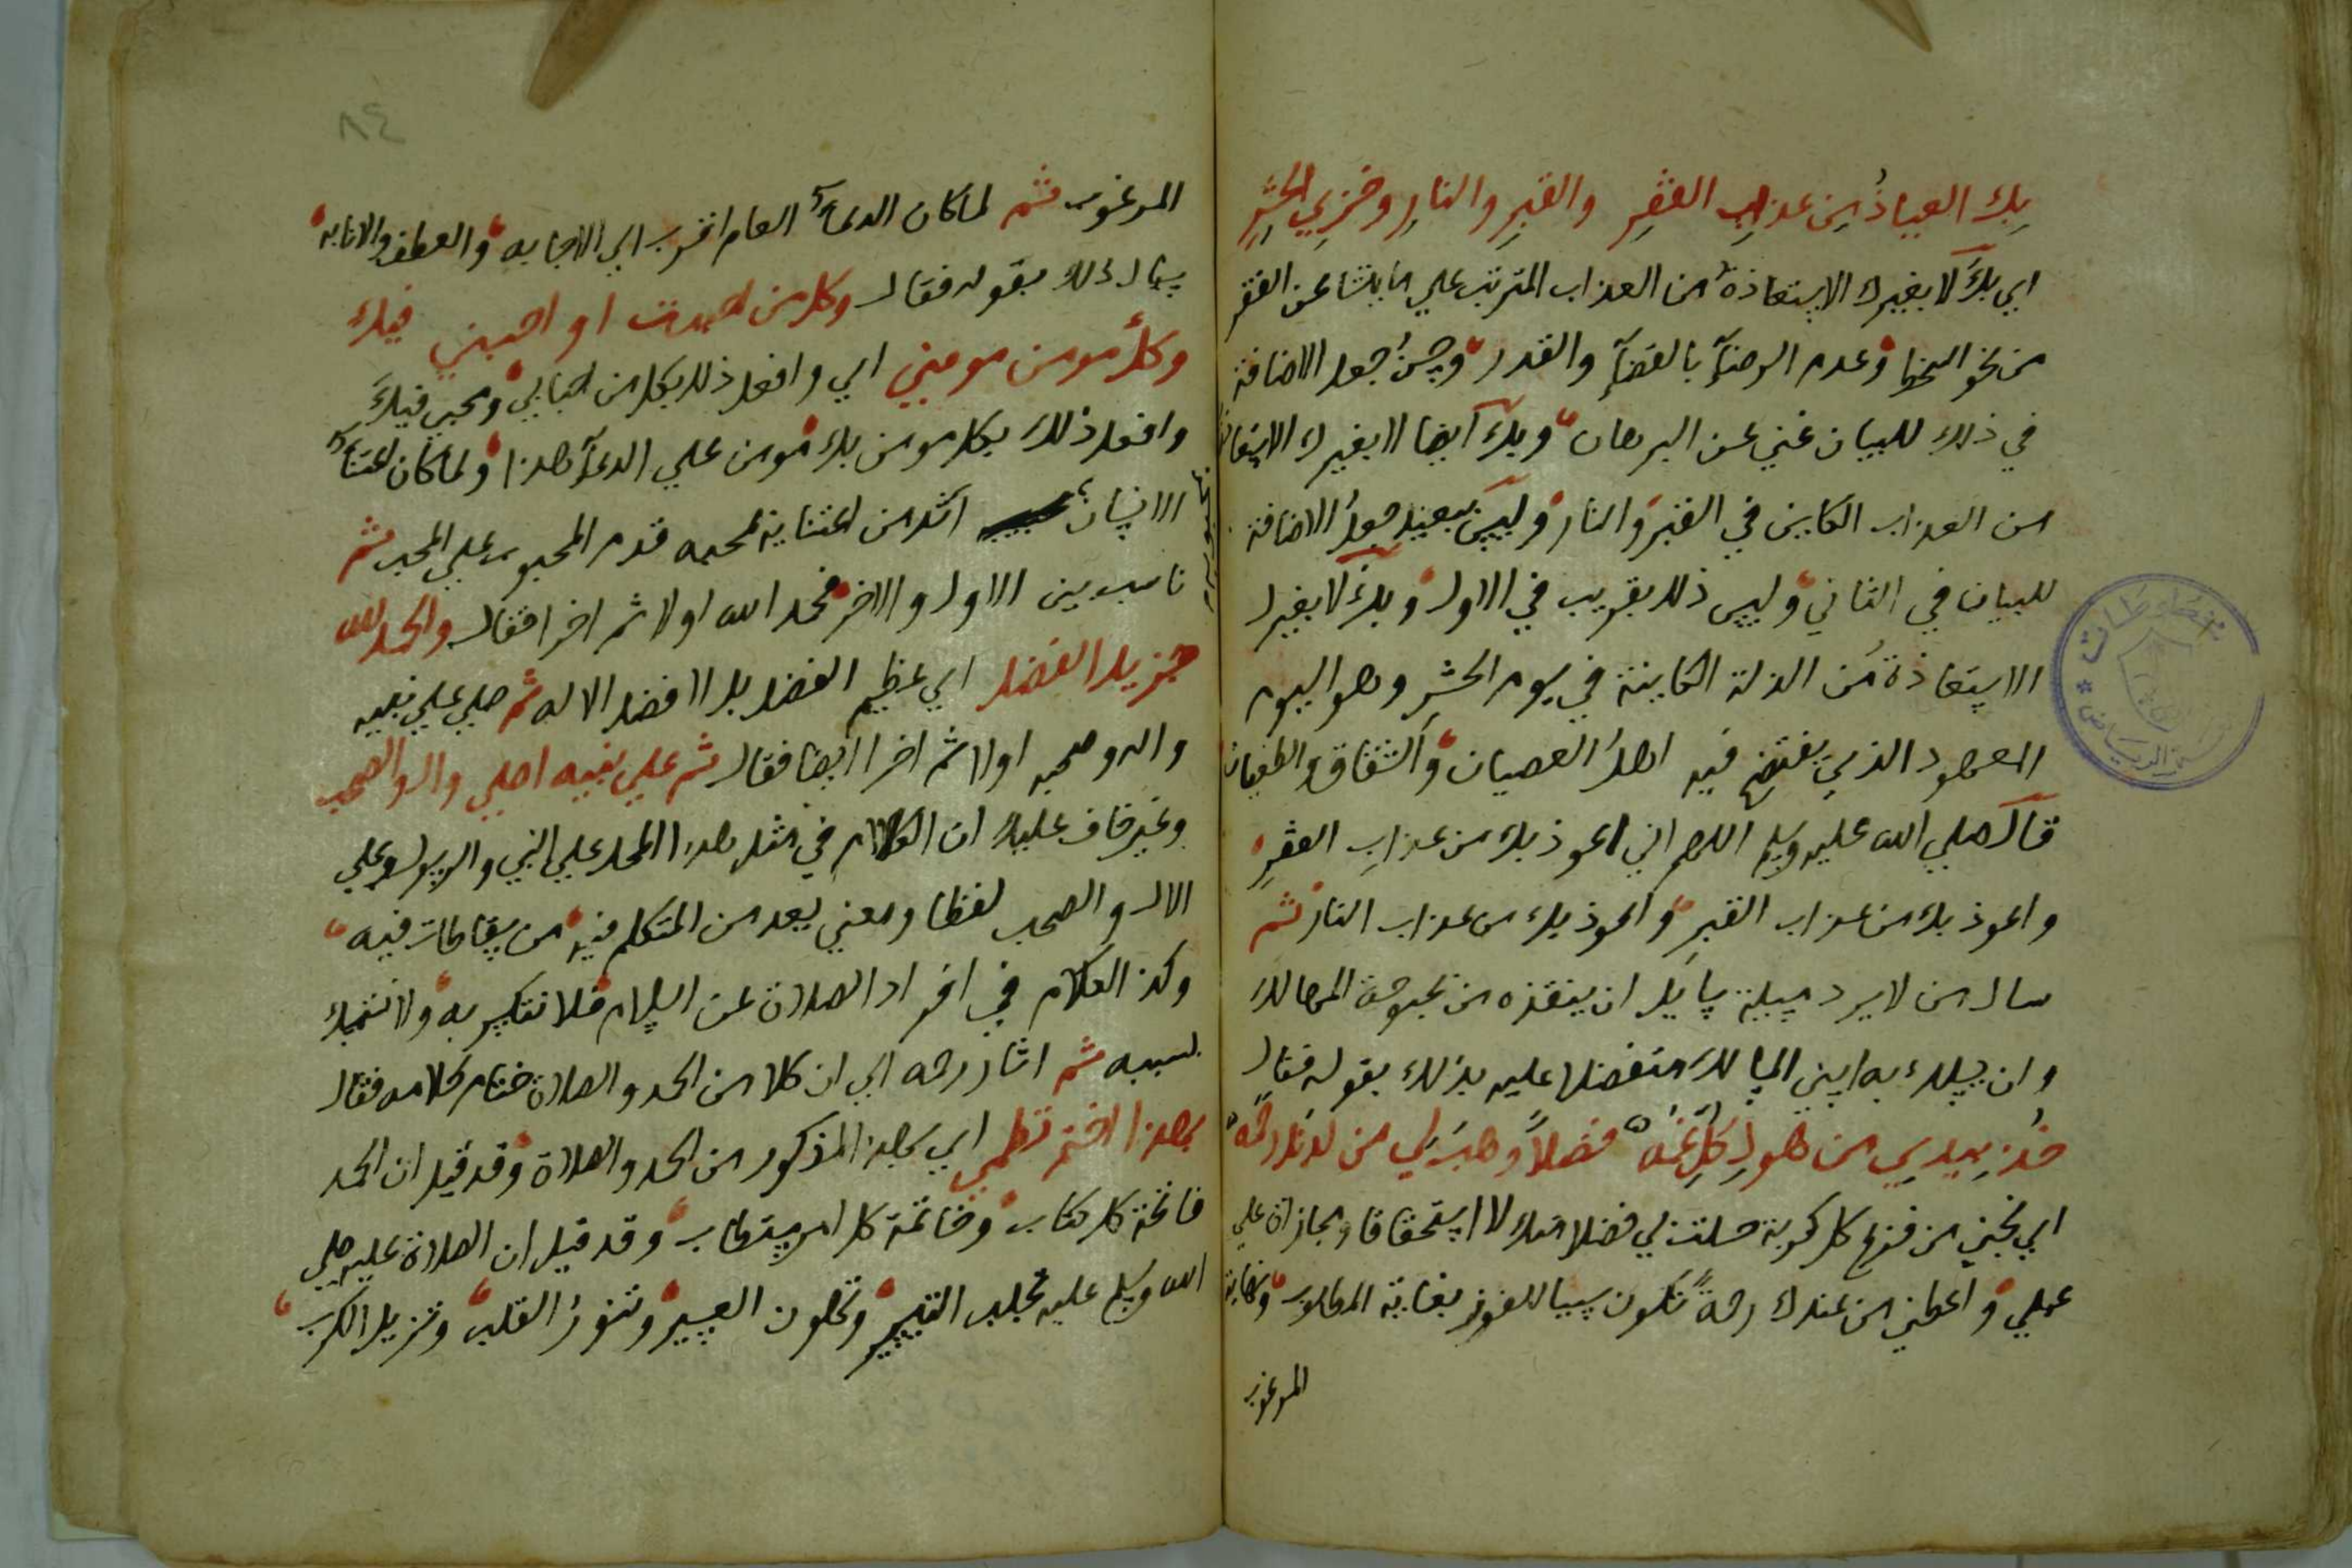 بك العياذ من عذاب الفقر والقبر والنار وخزي الحشر
اي بك لا بغيرك الاستعاذة من العذاب المترتب علي ما ينشا عن الفقر
من نحو السخط وعدم الرضآ بالقضآ والقدر وحسن جعل الاضافة
في ذلك للبيان غني عن البرهان وبك ايضا لا بغيرك الاستعاذة
من العذاب الكاين في القبر والنار وليس ببعيد جعل الاضافة
للبيان في الثاني وليس ذلك بقريب في الاول وبك لا بغيرك
الاستعاذة من الذلة الكاينة في يوم الحشر وهو اليوم
المعهود الذي يفتضح فيه اهل العصيان والشقاق والطغيان
قال صلي الله عليه وسلم اللهم اني اعوذ بك من عذاب الفقر
واعوذ بك من عذاب القبر واعوذ بك من عذاب النار ثم
سال من لا يرد مسيلة سايل ان ينقذه من بحبوحة المهالك
وان يسلك به اسني المسالك متفضلا عليه بذلك بقوله فقال
خذ بيدي من هول كل غمه فضلا وهب لي من لدنك رحمه
اي نجني من فزع كل كربة حصلت لي فضلا منك لا استحقاقا ومجازاة علي
عملي واعطني من عندك رحمة تكون سببا للفوز بغاية المطلوب ونهاية
المرغوب
٨٤
المرغوب ثم لما كان الدعآ العام اقرب الي الاجابه والعطف والانابه
سال ذلك بقوله فقال وكل من احببت او احبني فيك
وكل مومن مومني اي وافعل ذلك بكل من احبابي ومحبي فيك
وافعل ذلك بكل مومن بك مومن علي الدعآ هذا ولما كان اعتنآ
الانسان اكثر من اعتنايه لمحبه قدم المحبوب علي المحب ثم
ناسب بين الاول والاخر فحمد الله اولا ثم اخرا فقال والحمد لله
جزيل الفضل اي عظيم الفضل بل لا فضل الا له ثم صلي علي نبيه
واله وصحبه اولا ثم اخرا ايضا فقال ثم علي نبيه اصلي والال والصحب
وغير خاف عليك ان الكلام في مثل هذا المحل علي النبي والرسول وعلي
الال والصحب لفظا ومعني يعد من المتكلم فيه من سقاطات فيه
وكذ الكلام في افراد الصلاة عن السلام فلا نتكبر به ولا نتمسك
بسببه ثم اشار رحمه الي ان كلا من الحمد والصلاة ختام كلامه فقال
بهذا اختم نظمي اي بهذا المذكور من الحمد والصلاة وقد قيل ان الحمد
فاتحة كل كتاب وخاتمة كل امر يستطاب وقد قيل ان الصلاة عليه صلي
الله وسلم عليه تجلب التيسير وتهون العسير وتنور القلب وتزيل الكرب